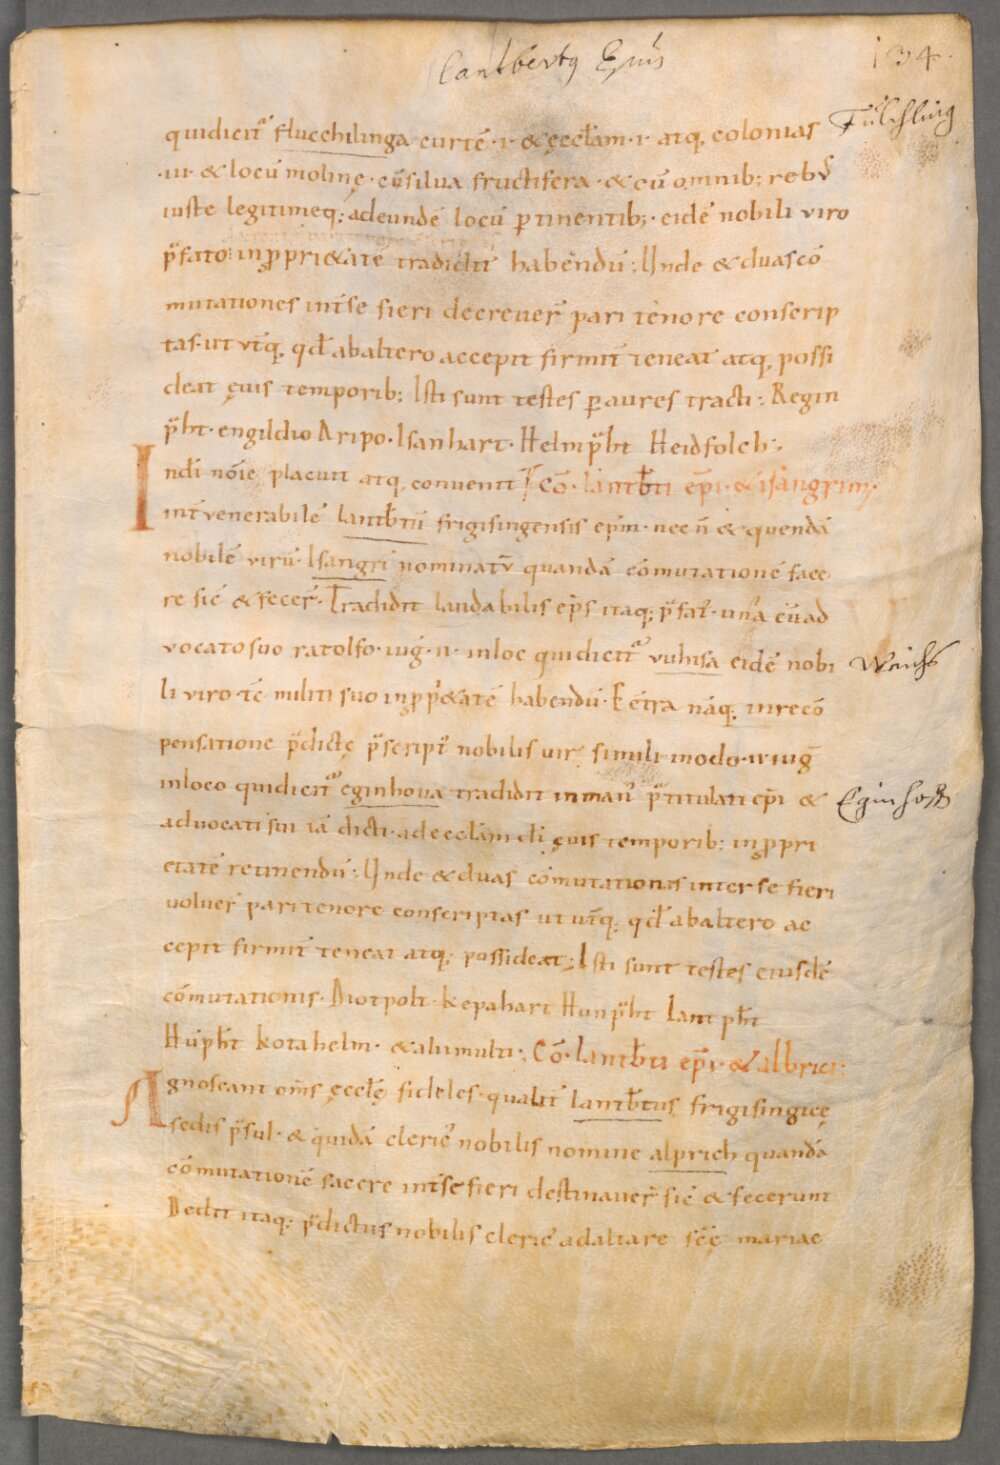 Lantbertus Epus
134.
quidicit᷑ flucchilinga curtē ·i· & ęccłam ·i· atq; colonias
Fülchling
·iii· & locū molinę · cū silua fructifera · & cū omnib; reb;
iuste legitimeq; ad eundē locū ptinentib; · eidē nobili viro
p̄fato inppri&ate tradidit habendū; Unde & duas cō
mutationes int̄ se fieri decreuer̄ pari tenore conscrip
tas · ut vt̄q; qd̄ ab altero accepit firmit̄ teneat atq; possi
deat ęuis temporib; Isti sunt testes p aures tracti; Regin
p̄ht · engildio Aripo · Isanhart · Helmp̄ht Heidfolch;
In dī nōie placuit atq; conuenit Cō · lantb̄ti ep̄i · & isangrim ·
int̄ venerabilē lantb̄tū frigisingensis ep̄m · nec n̄ & quendā
nobilē virū · Isangrī nominatū quandā cōmutationē face
re sic̄ & fecer̄ · Tradidit laudabilis ep̄s itaq; p̄fat᷑ · una cū ad
vocato suo ratolfo · iuḡ · ii · in loc quidicit᷑ vuhisa eidē nobi
Weichs
li viro · tē militi suo inppri&atē habendū · E cōtra nāq; in recō
pensatione p̄dictę p̄script᷑ nobilis uir simili modo · ii iuḡ
in loco quidicit᷑ eginhova tradidit in manū p̄titulati ep̄i &
Eginhoffen
advocati sui iā dicti · ad ecclām dī ęuis temporib; inppri
etatē retinendū; Unde & duas cōmutationis inter se fieri
voluer̄ pari tenore conscriptas ut vt̄q; qd̄ ab altero ac
cepit firmit̄ teneat atq; possideat; Isti sunt testes eiusdē
cōmutationis · Diotpolt · kepahart Hunp̄ht Lantp̄ht
Hūp̄ht kotahelm · & alii multi; Cō · lantb̄ti ep̄i · & albrici;
Agnoscant om̄s ęcclę fideles · qualit̄ lantb̄tus frigisingicę
sedis p̄sul · & quidā cleric᷑ nobilis nomine alprich quandā
cōmutationē facere int̄ se fieri destinauer̄ sic̄ & fecerunt
Dedit itaq; p̄dictus nobilis cleric᷑ ad altare scę̄ mariae